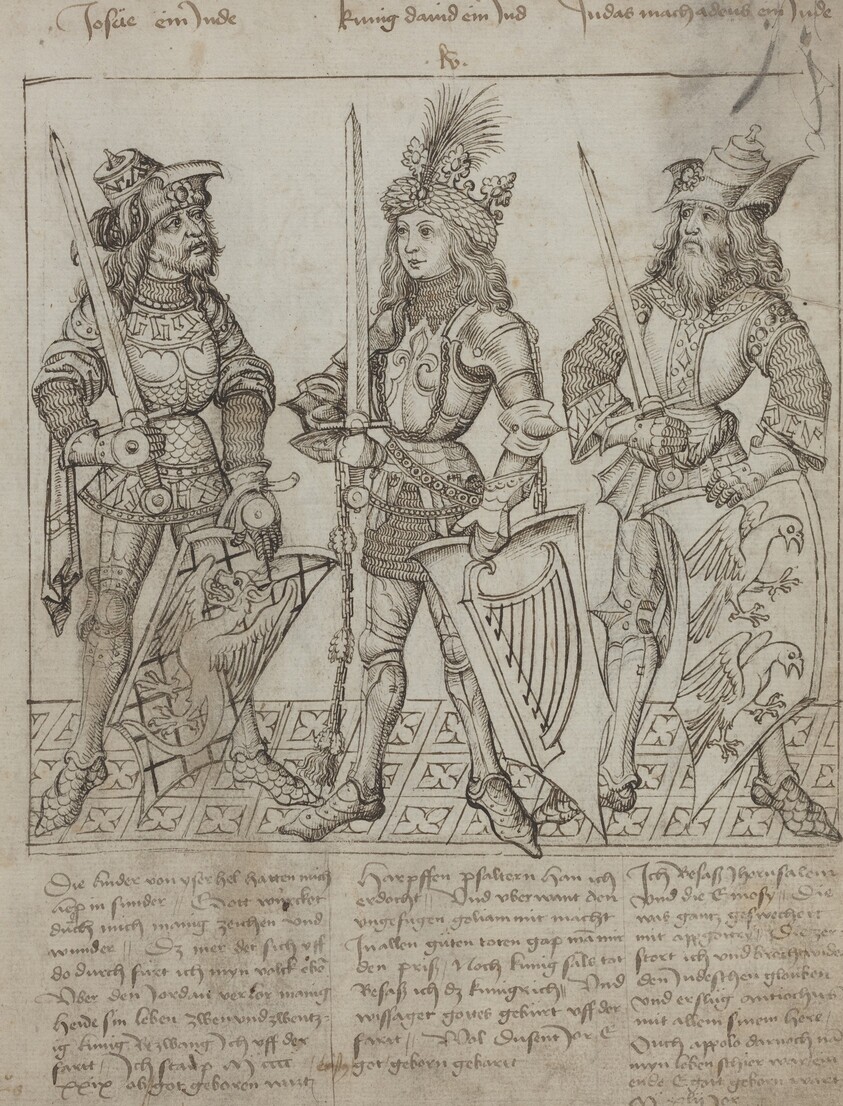 Josue ein Jude
kunig dauid ein Jud
Judas machabeus ein Jude
Die kinder von yserhel hatten mich
in sunder Gott wurcket
durch mich manig zeichen und
wunder Dz mer der sich uff
do durch furt ich myn volck
Uber den Jordan verlor manig
heide sin leben zwen und zwentz-
ig kunig bezwang Ich uff der
fartt Ich starp M cccc
xxix ob got geboren wart
Harpffen psaltern han ich
erdocht Und uberwant den
ungefugen goliam mit macht
In allen guten toten gap ma mir
den priss Noch kunig tot
Besass ich dz kungrich Und
wissaget gottes geburt uff der
fartt Wol dusent Jor E
got geborn
Ich Besass Jherusalem
Und die Die
was gantz geswechert
mit appgottery Die zer
stort ich und
den Judeschen glouben
Und erslug antiochus
mit allem sinem here
Ouch appolo darnoch
myn leben schier
ende E gott geborn wart
Jor